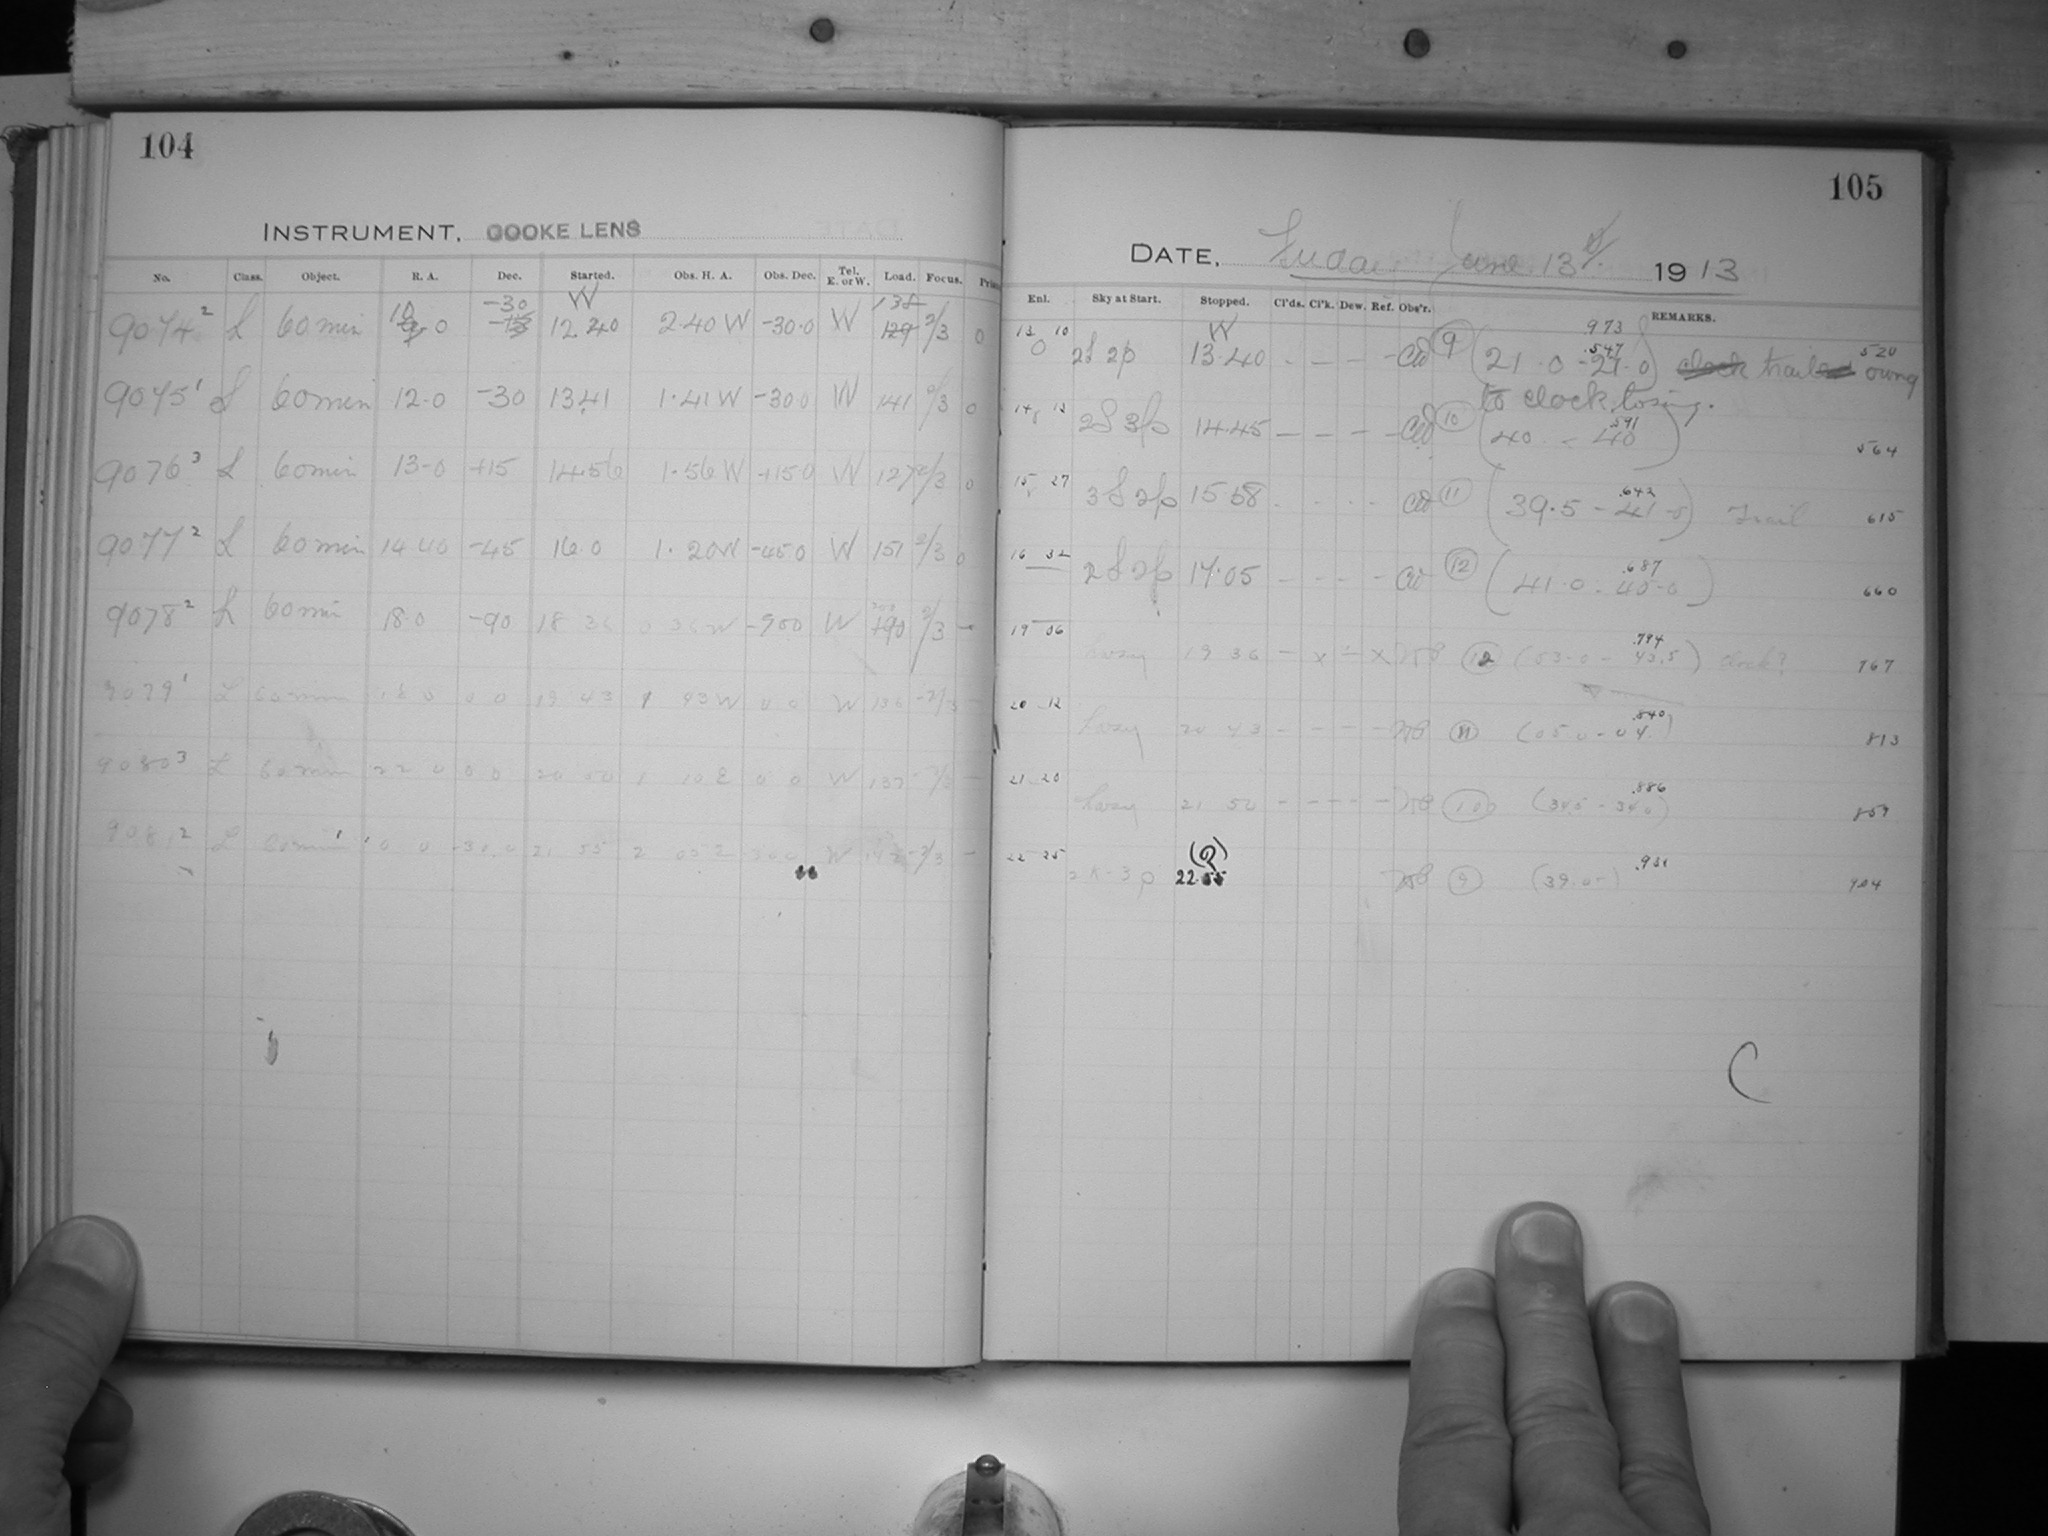 104
INSTRUMENT, COOKE LENS
No. Class. Object. R. A. Dec. Started. Obs. H. A. Obs. Dec. Tel. E. or W. Load. Focus.
10 -30 W 138
9074 2 L 60 min 0 12 40 2.40 W -30.0 W 129 2/3 0
9075 1 L 60 min 12.0 -30 13 41 1.41 W -30.0 W 141 2/3 0
9076 3 L 60 min 13.0 +15 14 56 1.56 W +15.0 W 127 2/3 0
9077 2 L 60 min 14 40 -45 16.0 1.20 W -45.0 W 151 2/3 0
9078 2 L 60 min 18.0 -90 18 36 0 36 W -90 0 W 190 2/3 -
9079 1 L 60 min 18 0 0 0 19 43 1 43 W 0 0 W 136 -2/3 -
9080 3 L 60 min 22 0 0 0 20 50 1 10 E 0 0 W 137 -2/3 -
9081 2 L 60 min 0 0 -30.0 21 55 2 05 E W -2/3 -
105
DATE, June 13 1913
Enl. Sky at Start. Stopped. Cl'ds. Cl'k. Dew. Ref. Obs'r. REMARKS.
13 10 W .973
0 2f 2p 13.40 - - - - 9 (21.0 - 21.0) .547 clock trailed owing 520
to clock losing.
14 13 2f 3p 14.45 - - - - 10 (40 - 40) .591 564
15 27 3f 2p 15 58 11 (39.5 - 41.5) .642 Trail 615
16 32 2f 2p 17.05 - - - - 12 (41.0 - 40.0) .687 660
19 06 hazy 19 36 - x - x 12 (53.0 - 43.5) .794 clock? 767
20 12 hazy 20 43 - - - - 11 (05.0 - 04.) .840 813
21 20 hazy 21 50 - - - - 10 (34.5 - 34.0) .886 859
22 25 2 K-3p 22.55 (?) 9 (39.0-) .931 904
C